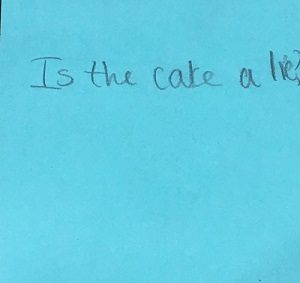 Is the cake a lie?